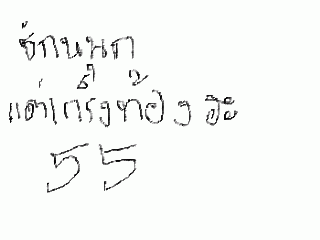 รักนนก
แต่เกร็งท้อง อะ
55